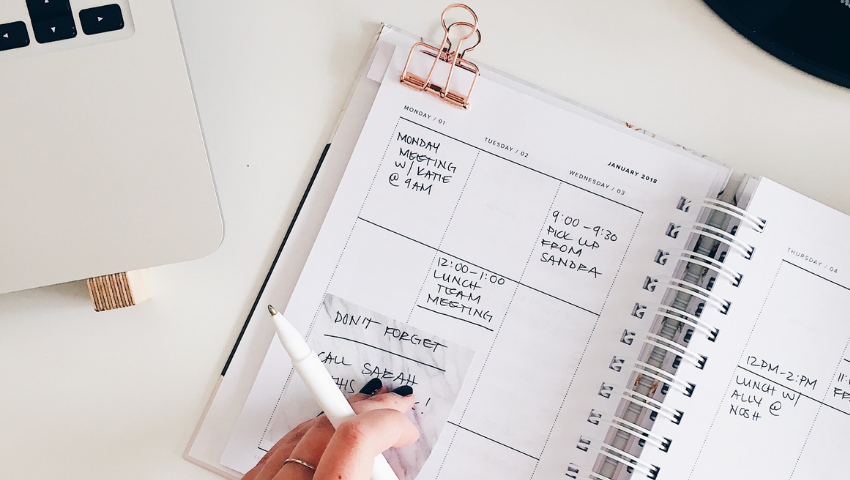 JANUARY 2018
MONDAY / 01
MONDAY
MEETING
W/ KATIE
@ 9AM
TUESDAY / 02
12:00-1:00
LUNCH
TEAM
MEETING
WEDNESDAY / 03
9:00-9:30
PICK UP
FROM
SANDRA
DON'T FORGET
CALL SARAH
THIS
THURSDAY / 04
12PM-2:PM
LUNCH W/
ALLY @
NOSH